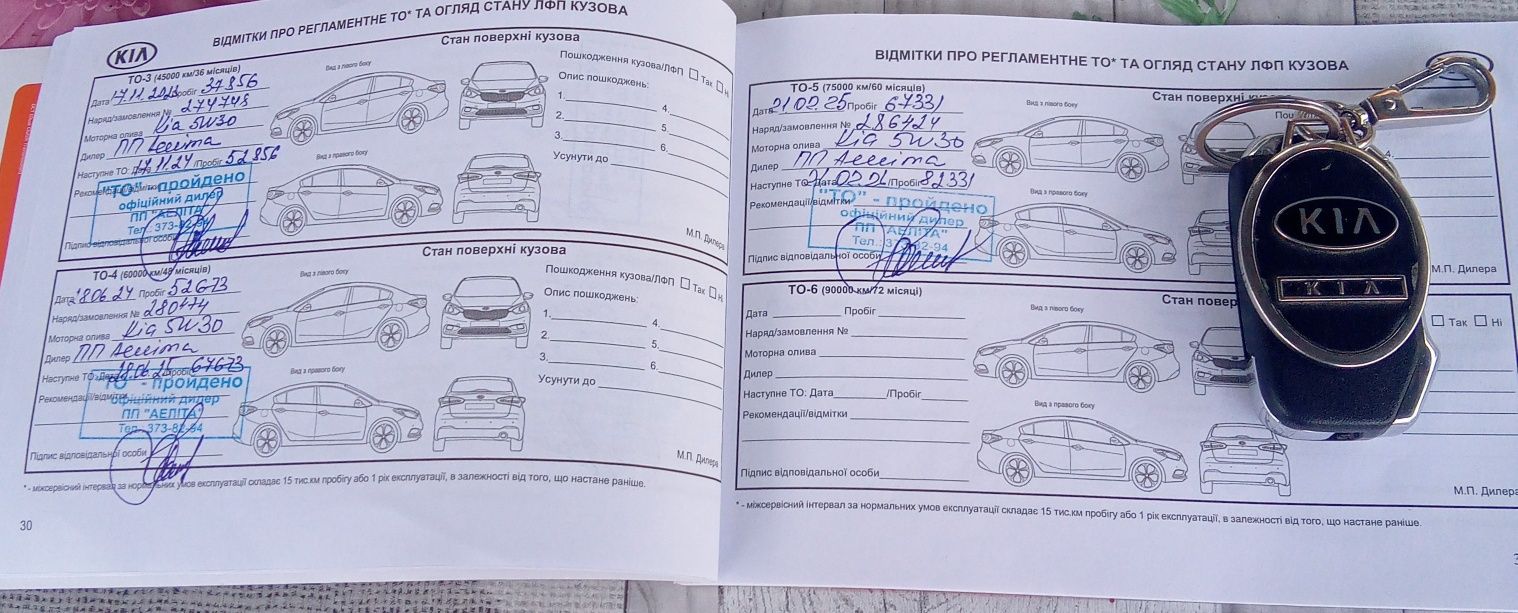 KIA
ВІДМІТКИ ПРО РЕГЛАМЕНТНЕ ТО* ТА ОГЛЯД СТАНУ ЛФП КУЗОВА
ТО-3 (45000 км/36 місяців)
Стан поверхні кузова
Дата 17.11.2023 Пробіг 37856
Вид з лівого боку
Пошкодження кузова/ЛФП Так Ні
Наряд/замовлення № 274748
Опис пошкоджень:
Моторна олива Kia 5W30
1. 4.
Дилер ПП Аеліта
2. 5.
Наступне ТО: Дата 17.11.24 /Пробіг 52856
Вид з правого боку
3. 6.
Рекомендації/відмітки
Усунути до
"ТО" - пройдено
офіційний дилер
ПП "АЕЛІТА"
Тел.: 373-82-94
Підпис відповідальної особи
М.П. Дилера
ТО-4 (60000 км/48 місяців)
Стан поверхні кузова
Дата 18.06.24 Пробіг 52673
Вид з лівого боку
Пошкодження кузова/ЛФП Так Ні
Наряд/замовлення № 280474
Опис пошкоджень:
Моторна олива Kia 5W30
1. 4.
Дилер ПП Аеліта
2. 5.
Наступне ТО: Дата 18.06.25 /Пробіг 67673
Вид з правого боку
3. 6.
Рекомендації/відмітки
Усунути до
"ТО" - пройдено
офіційний дилер
ПП "АЕЛІТА"
Тел.: 373-82-94
Підпис відповідальної особи
М.П. Дилера
* - міжсервісний інтервал за нормальних умов експлуатації складає 15 тис.км пробігу або 1 рік експлуатації, в залежності від того, що настане раніше.
30
ВІДМІТКИ ПРО РЕГЛАМЕНТНЕ ТО* ТА ОГЛЯД СТАНУ ЛФП КУЗОВА
ТО-5 (75000 км/60 місяців)
Стан
Дата 21.02.25 Пробіг 67331
Вид з лівого боку
Наряд/замовлення № 286424
Моторна олива Kia 5W30
4.
Дилер ПП Аеліта
Наступне ТО: Дата 21.02.26 /Пробіг 82331
Вид з правого боку
Рекомендації/відмітки
"ТО" - пройдено
офіційний дилер
ПП "АЕЛІТА"
Тел.: 373-82-94
Підпис відповідальної особи
М.П. Дилера
KIA
KIA
ТО-6 (90000 км/72 місяці)
Стан повер
Дата Пробіг
Вид з лівого боку
Так Ні
Наряд/замовлення №
Моторна олива
Дилер
Наступне ТО: Дата /Пробіг
Вид з правого боку
Рекомендації/відмітки
Підпис відповідальної особи
М.П. Дилера
* - міжсервісний інтервал за нормальних умов експлуатації складає 15 тис.км пробігу або 1 рік експлуатації, в залежності від того, що настане раніше.